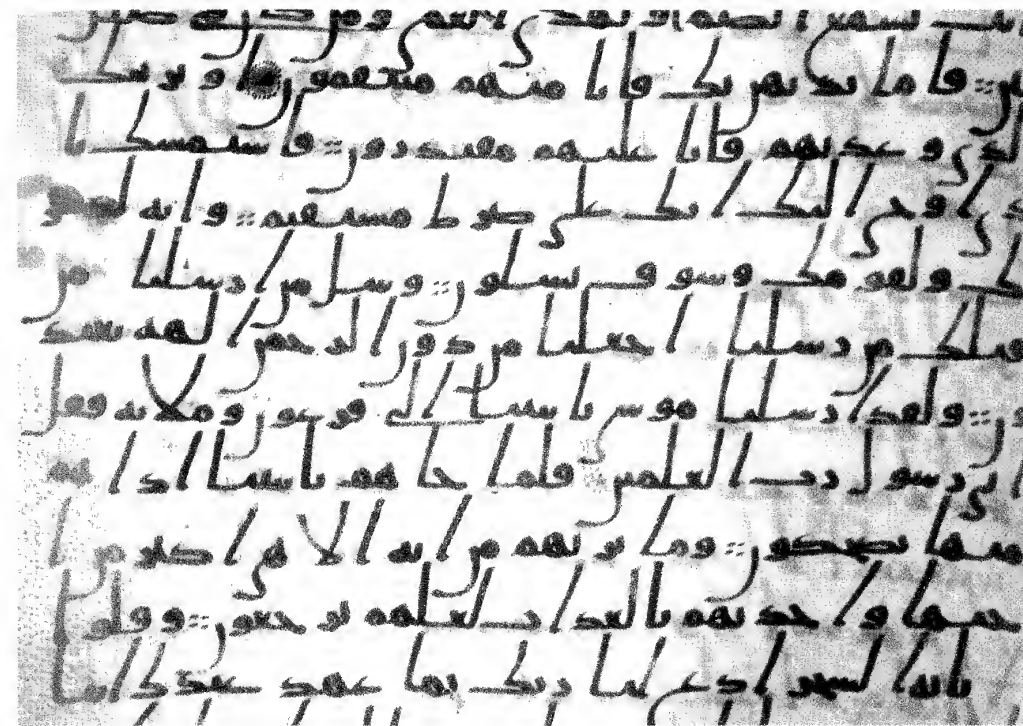 انت تسمع الصم او تهدى العمى ومن كان فى ضلل
مبين فاما نذهبن بك فانا منهم منتقمون او نرينك
الذى وعدنهم فانا عليهم مقتدرون فاستمسك با
لذى اوحى اليك انك على صرط مستقيم وانه لذكر
لك ولقومك وسوف تسلون وسل من ارسلنا من
قبلك من رسلنا اجعلنا من دون الرحمن الهه يعبد
ون ولقد ارسلنا موسى بايتنا الى فرعون وملايه فقل
انى رسول رب العلمين فلما جاهم بايتنا اذا هم
منها يضحكون وما نريهم من ايه الا هى اكبر من ا
ختها واخذنهم بالعذاب لعلهم يرجعون وقلوا
يايها السحر ادع لنا ربك بما عهد عندك اننا